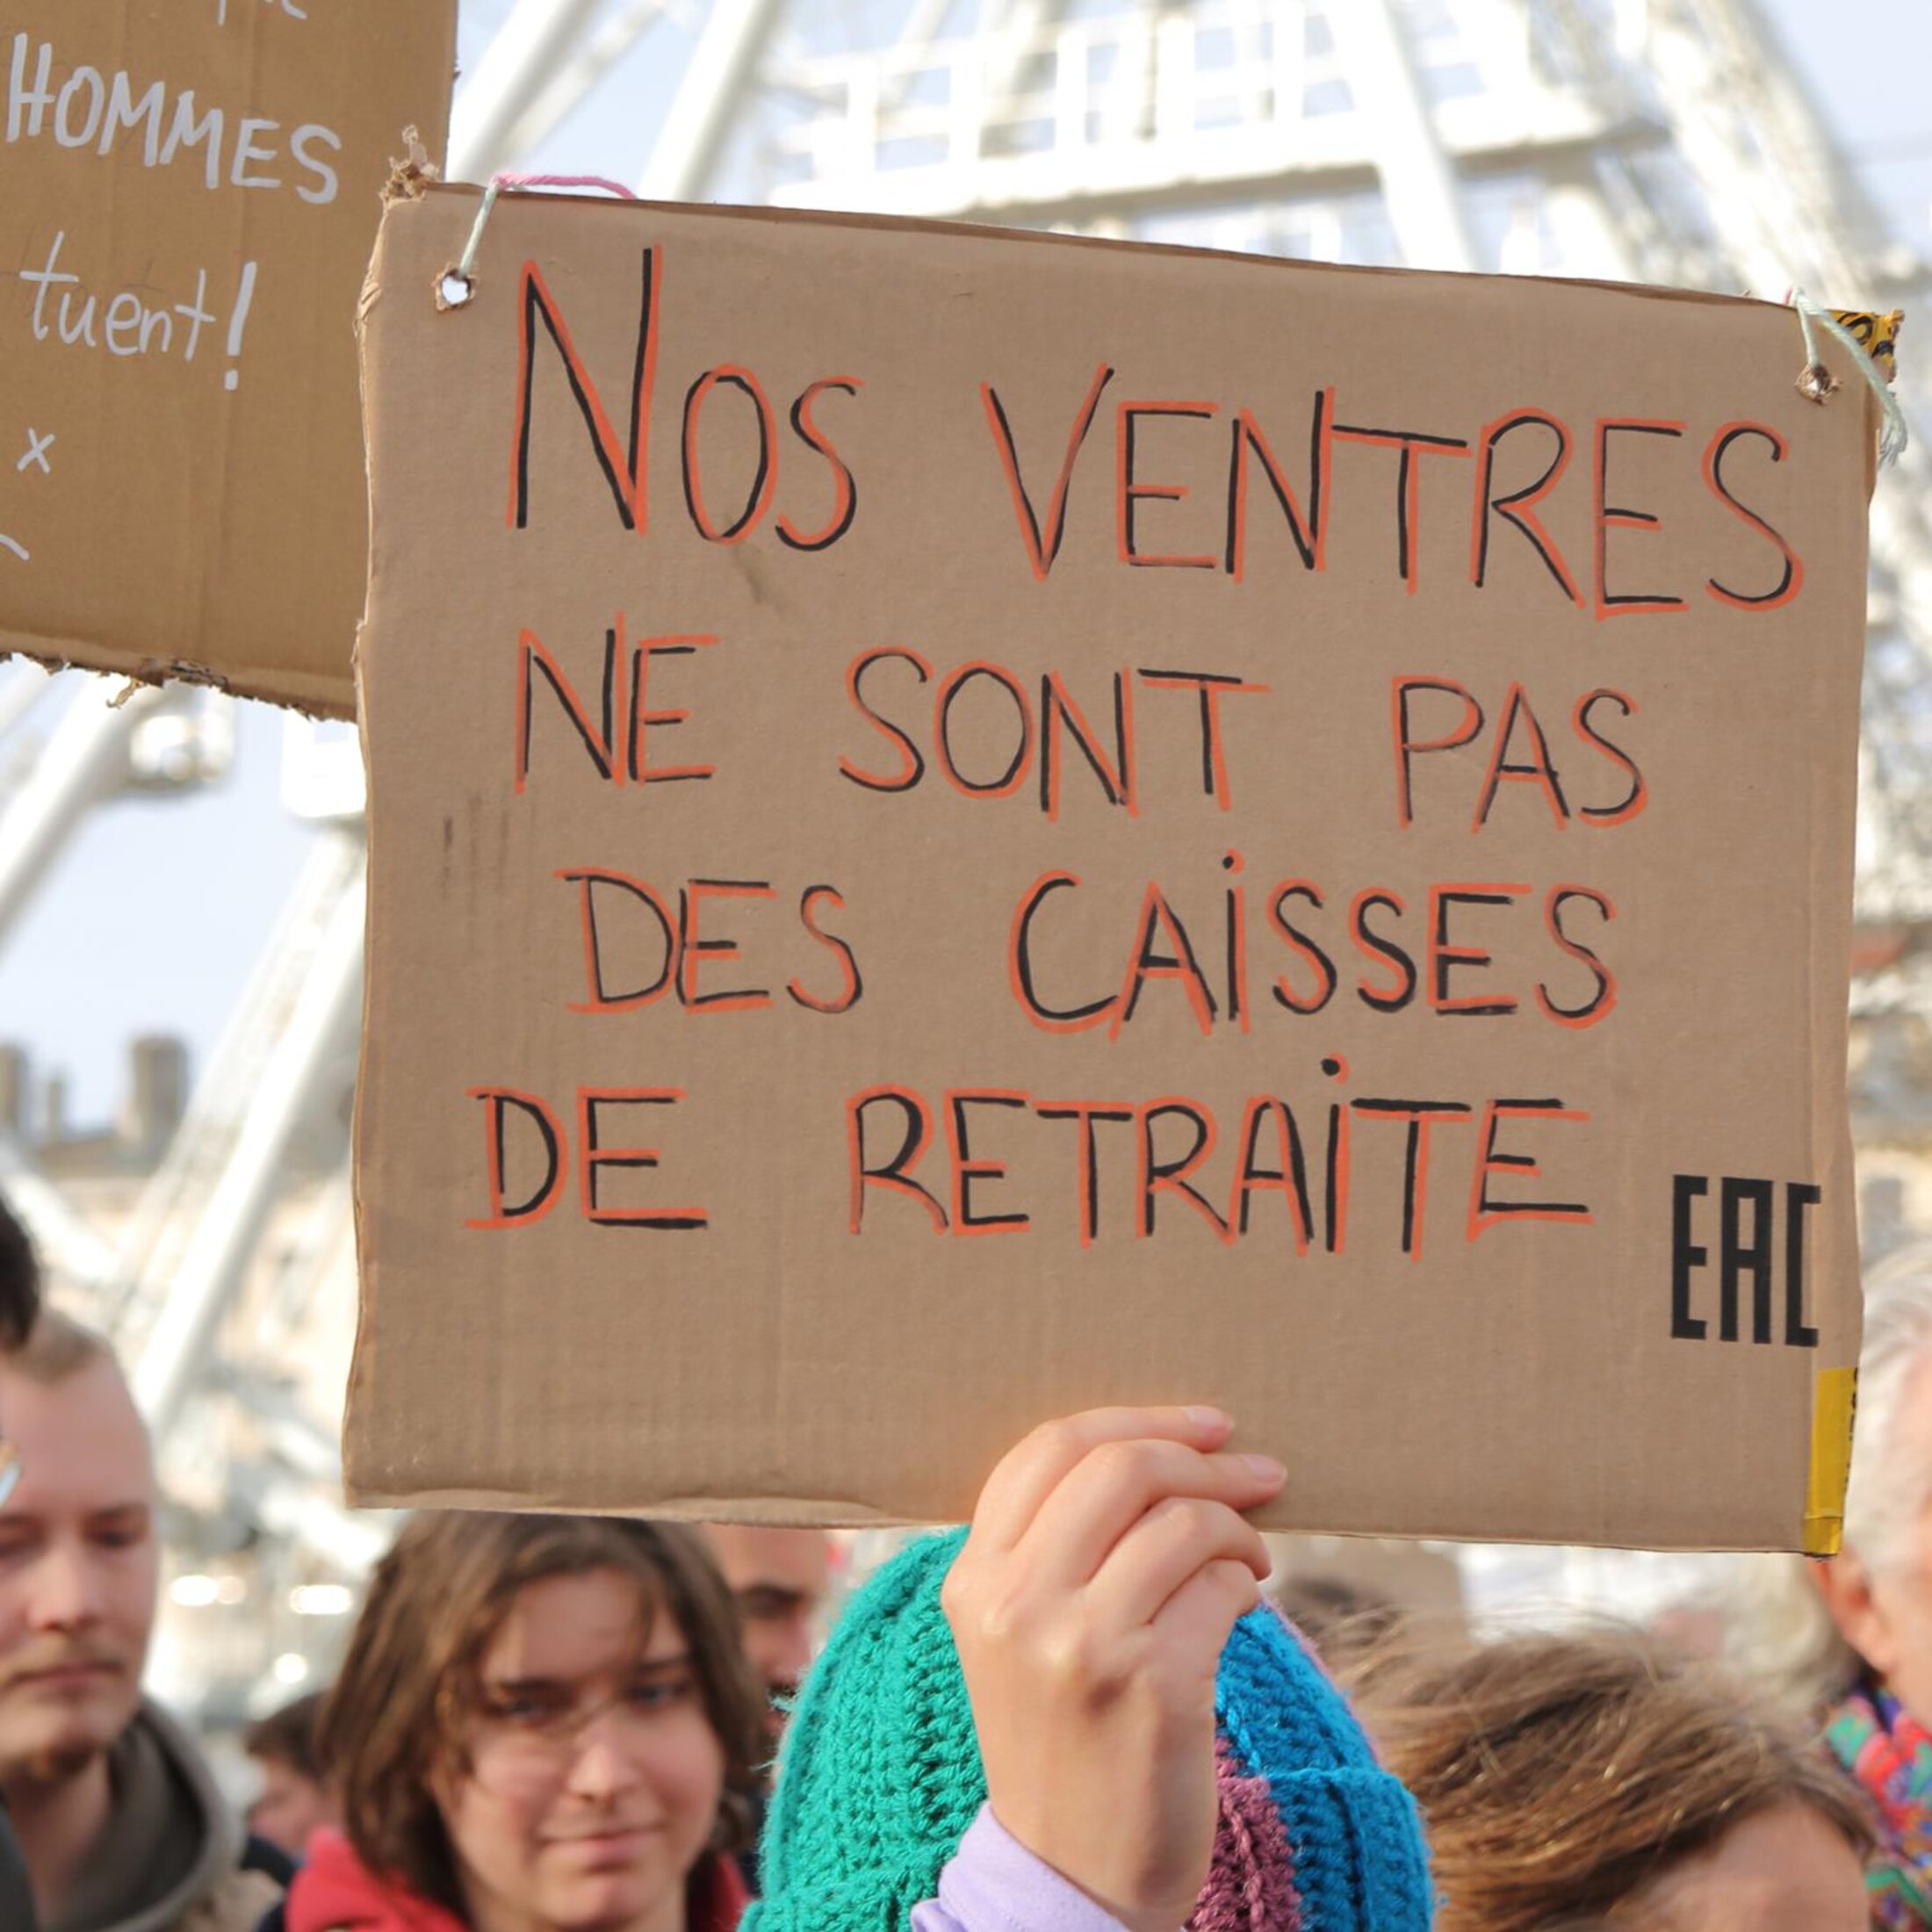 HOMMES
tuent!
x
NOS VENTRES
NE SONT PAS
DES CAISSES
DE RETRAITE
EAC